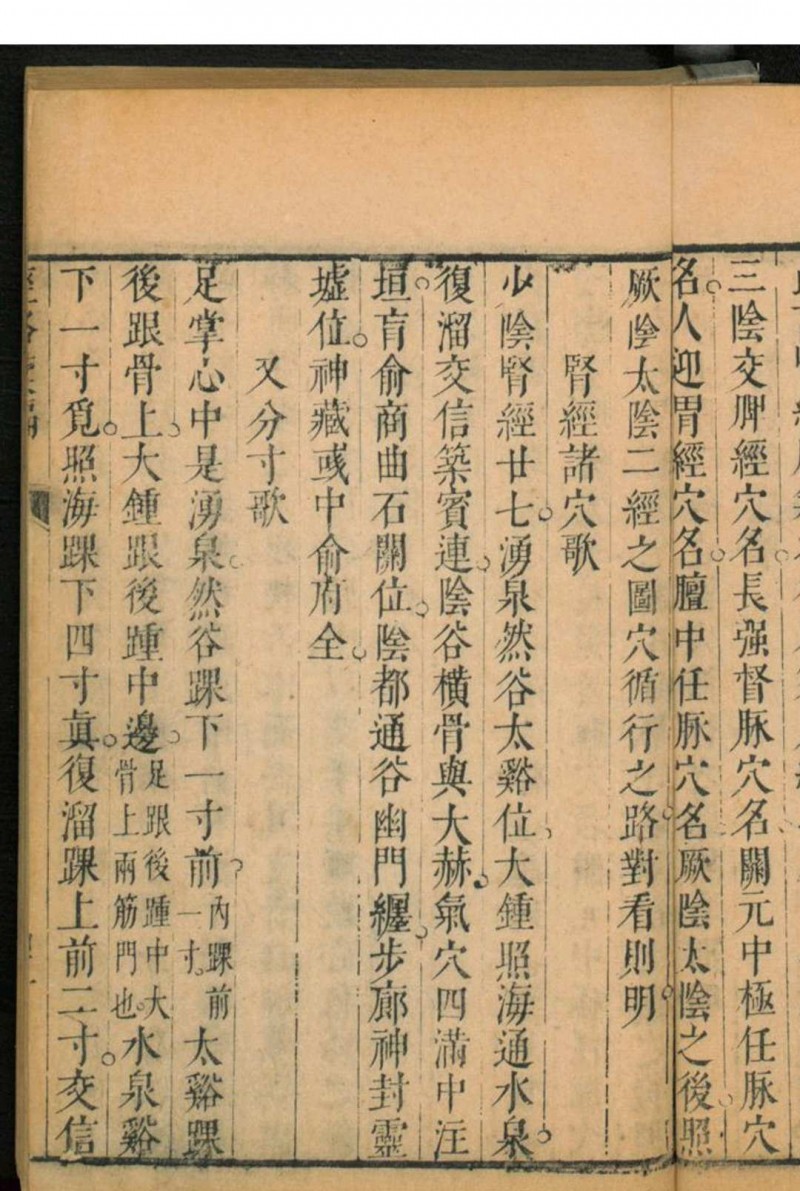 三陰交脾經穴名長强督脉穴名關元中極任脉穴
名人迎胃經穴名膻中任脉穴名厥陰太陰之後照
厥陰太陰二經之圖穴循行之路對看則明
腎經諸穴歌
少陰腎經廿七湧泉然谷太谿位大鍾照海通水泉
復溜交信築賓連陰谷橫骨與大赫氣穴四滿中注
垣肓俞商曲石關位陰都通谷幽門纏步廊神封靈
墟位神藏彧中俞府全
又分寸歌
足掌心中是湧泉然谷踝下一寸前內踝前一寸太谿踝
後跟骨上大鍾跟後踵中邊足跟後踵中大骨上兩筋門也水泉谿
下一寸覓照海踝下四寸眞復溜踝上前二寸交信